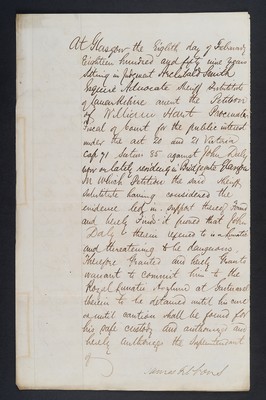 At Glasgow the Eighth day of February
Eighteen hundred and fifty nine years
Sitting in Judgment Archibald Smith
Esquire Advocate Sheriff Substitute
of Lanarkshire anent the Petition
of William Hart Procurator
Fiscal of Court for the public interest
under the act 20 and 21 Victoria
Cap 71 Section 85 against John Daly
now or lately residing in Bridgegate Glasgow
In which Petition the said Sheriff
Substitute having considered the
evidence led in support thereof Found
and hereby Finds it proved that John
Daly therein referred to is a lunatic
and threatening to be dangerous
Therefore Granted and hereby Grants
warrant to commit him to the
Royal Lunatic Asylum at Gartnavel
therein to be detained until his cure
or until caution shall be found for
his safe custody and authorized and
hereby authorizes the Superintendent
of